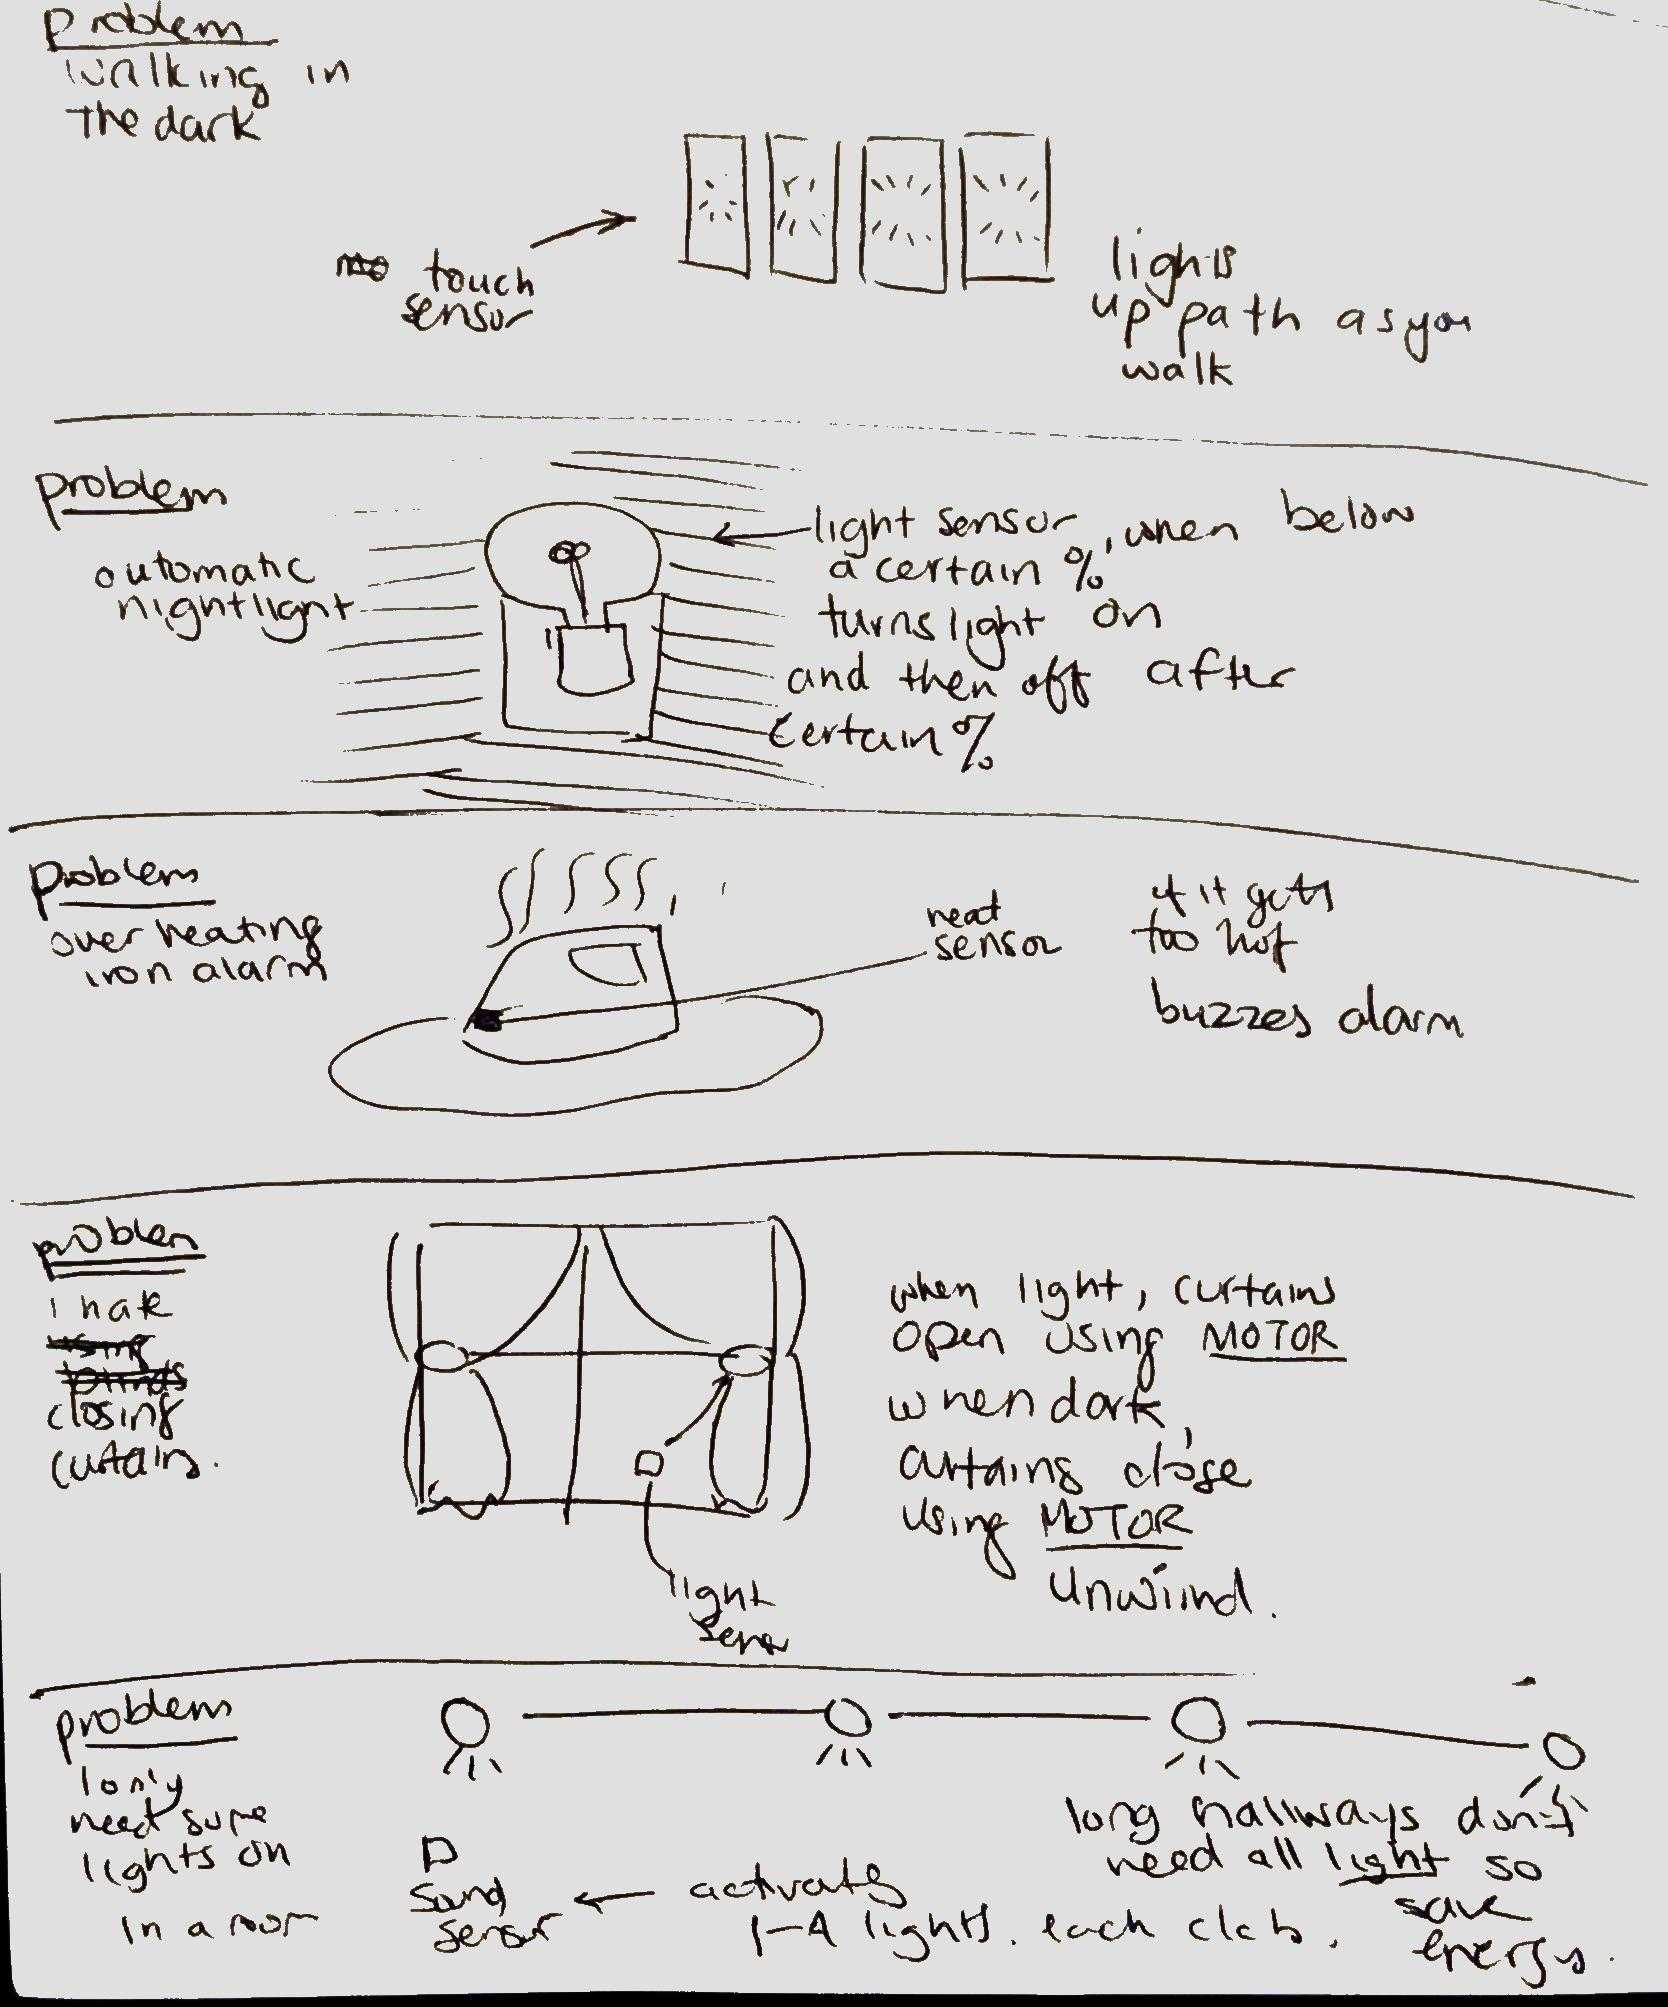 problem
walking in
the dark
touch
sensor
lights
up path as you
walk
problem
automatic
nightlight
light sensor, when below
a certain %
turns light on
and then off after
certain %
problem
over heating
iron alarm
heat
sensor
if it gets
too hot
buzzes alarm
problem
i hate
using
blinds
closing
curtains.
when light, curtains
open using MOTOR
when dark,
curtains close
using MOTOR
unwiind.
light
sensor
problem
I only
need some
lights on
in a room
sound
sensor
activates
1-4 lights. each clab.
long hallways don't
need all light so
save
energy.